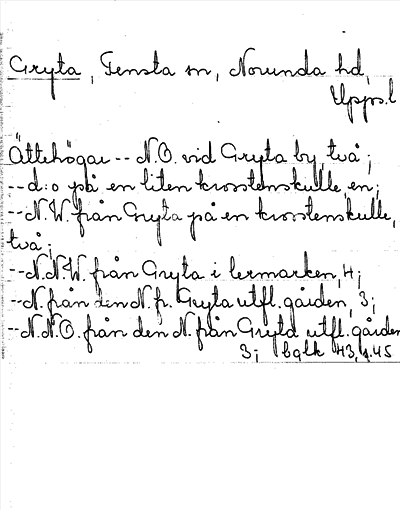 Gryta, Tensta sn, Norunda hd,
Upps. l
Ättehögar -- N.O. vid Gryta by, två;
-- d:o på en liten krosstenskulle, en;
-- N.W. från Gryta på en krosstenskulle,
två;
-- N.N.W. från Gryta i lermarken, 4;
-- N. från den N. fr. Gryta utfl. gården, 3;
-- N.N.O. från den N. från Gryta utfl. gården
3; bglk 43, s. 45